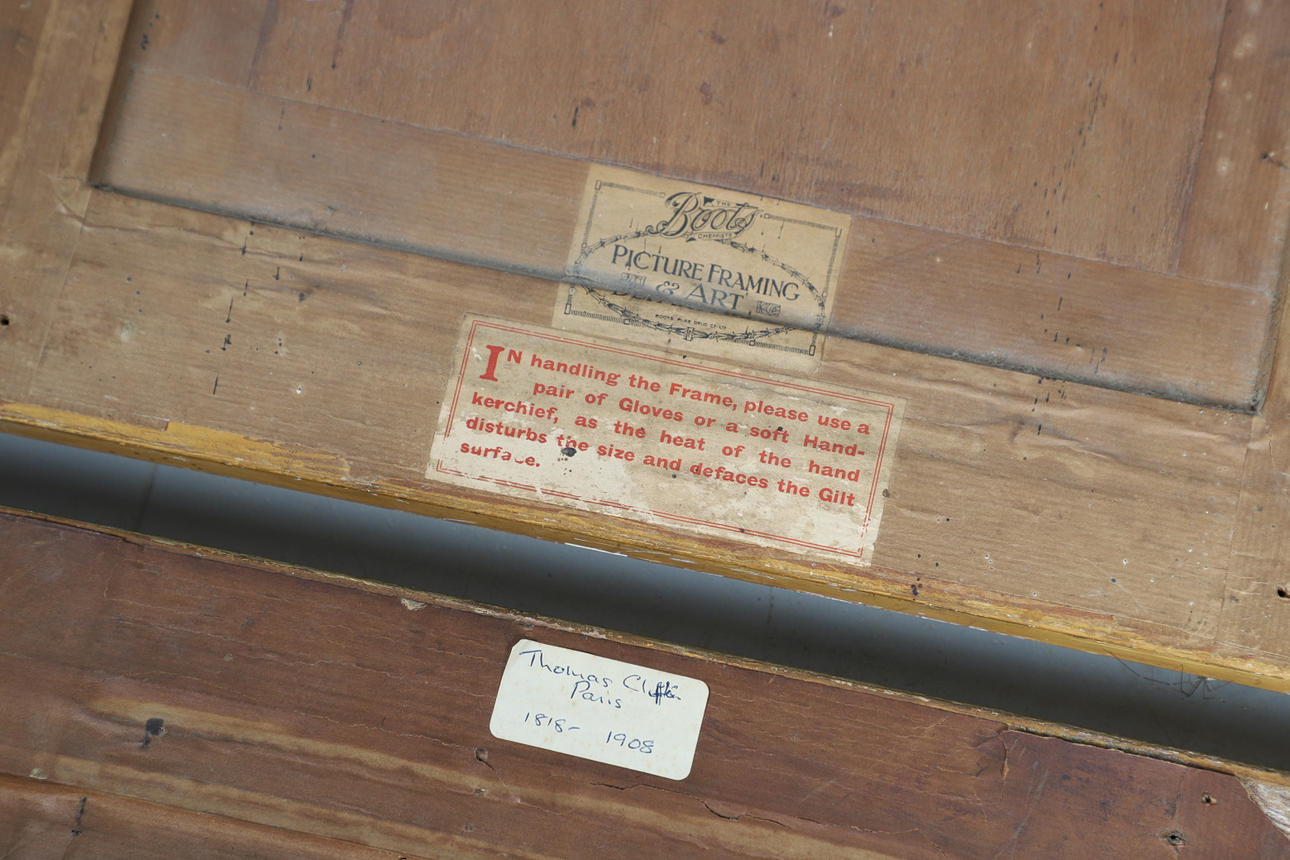 THE
Boots
CHEMISTS
PICTURE FRAMING
& ART
BOOTS PURE DRUG CO LTD
IN handling the Frame, please use a
pair of Gloves or a soft Hand-
kerchief, as the heat of the hand
disturbs the size and defaces the Gilt
surface.
Thomas
Paris
1818- 1908